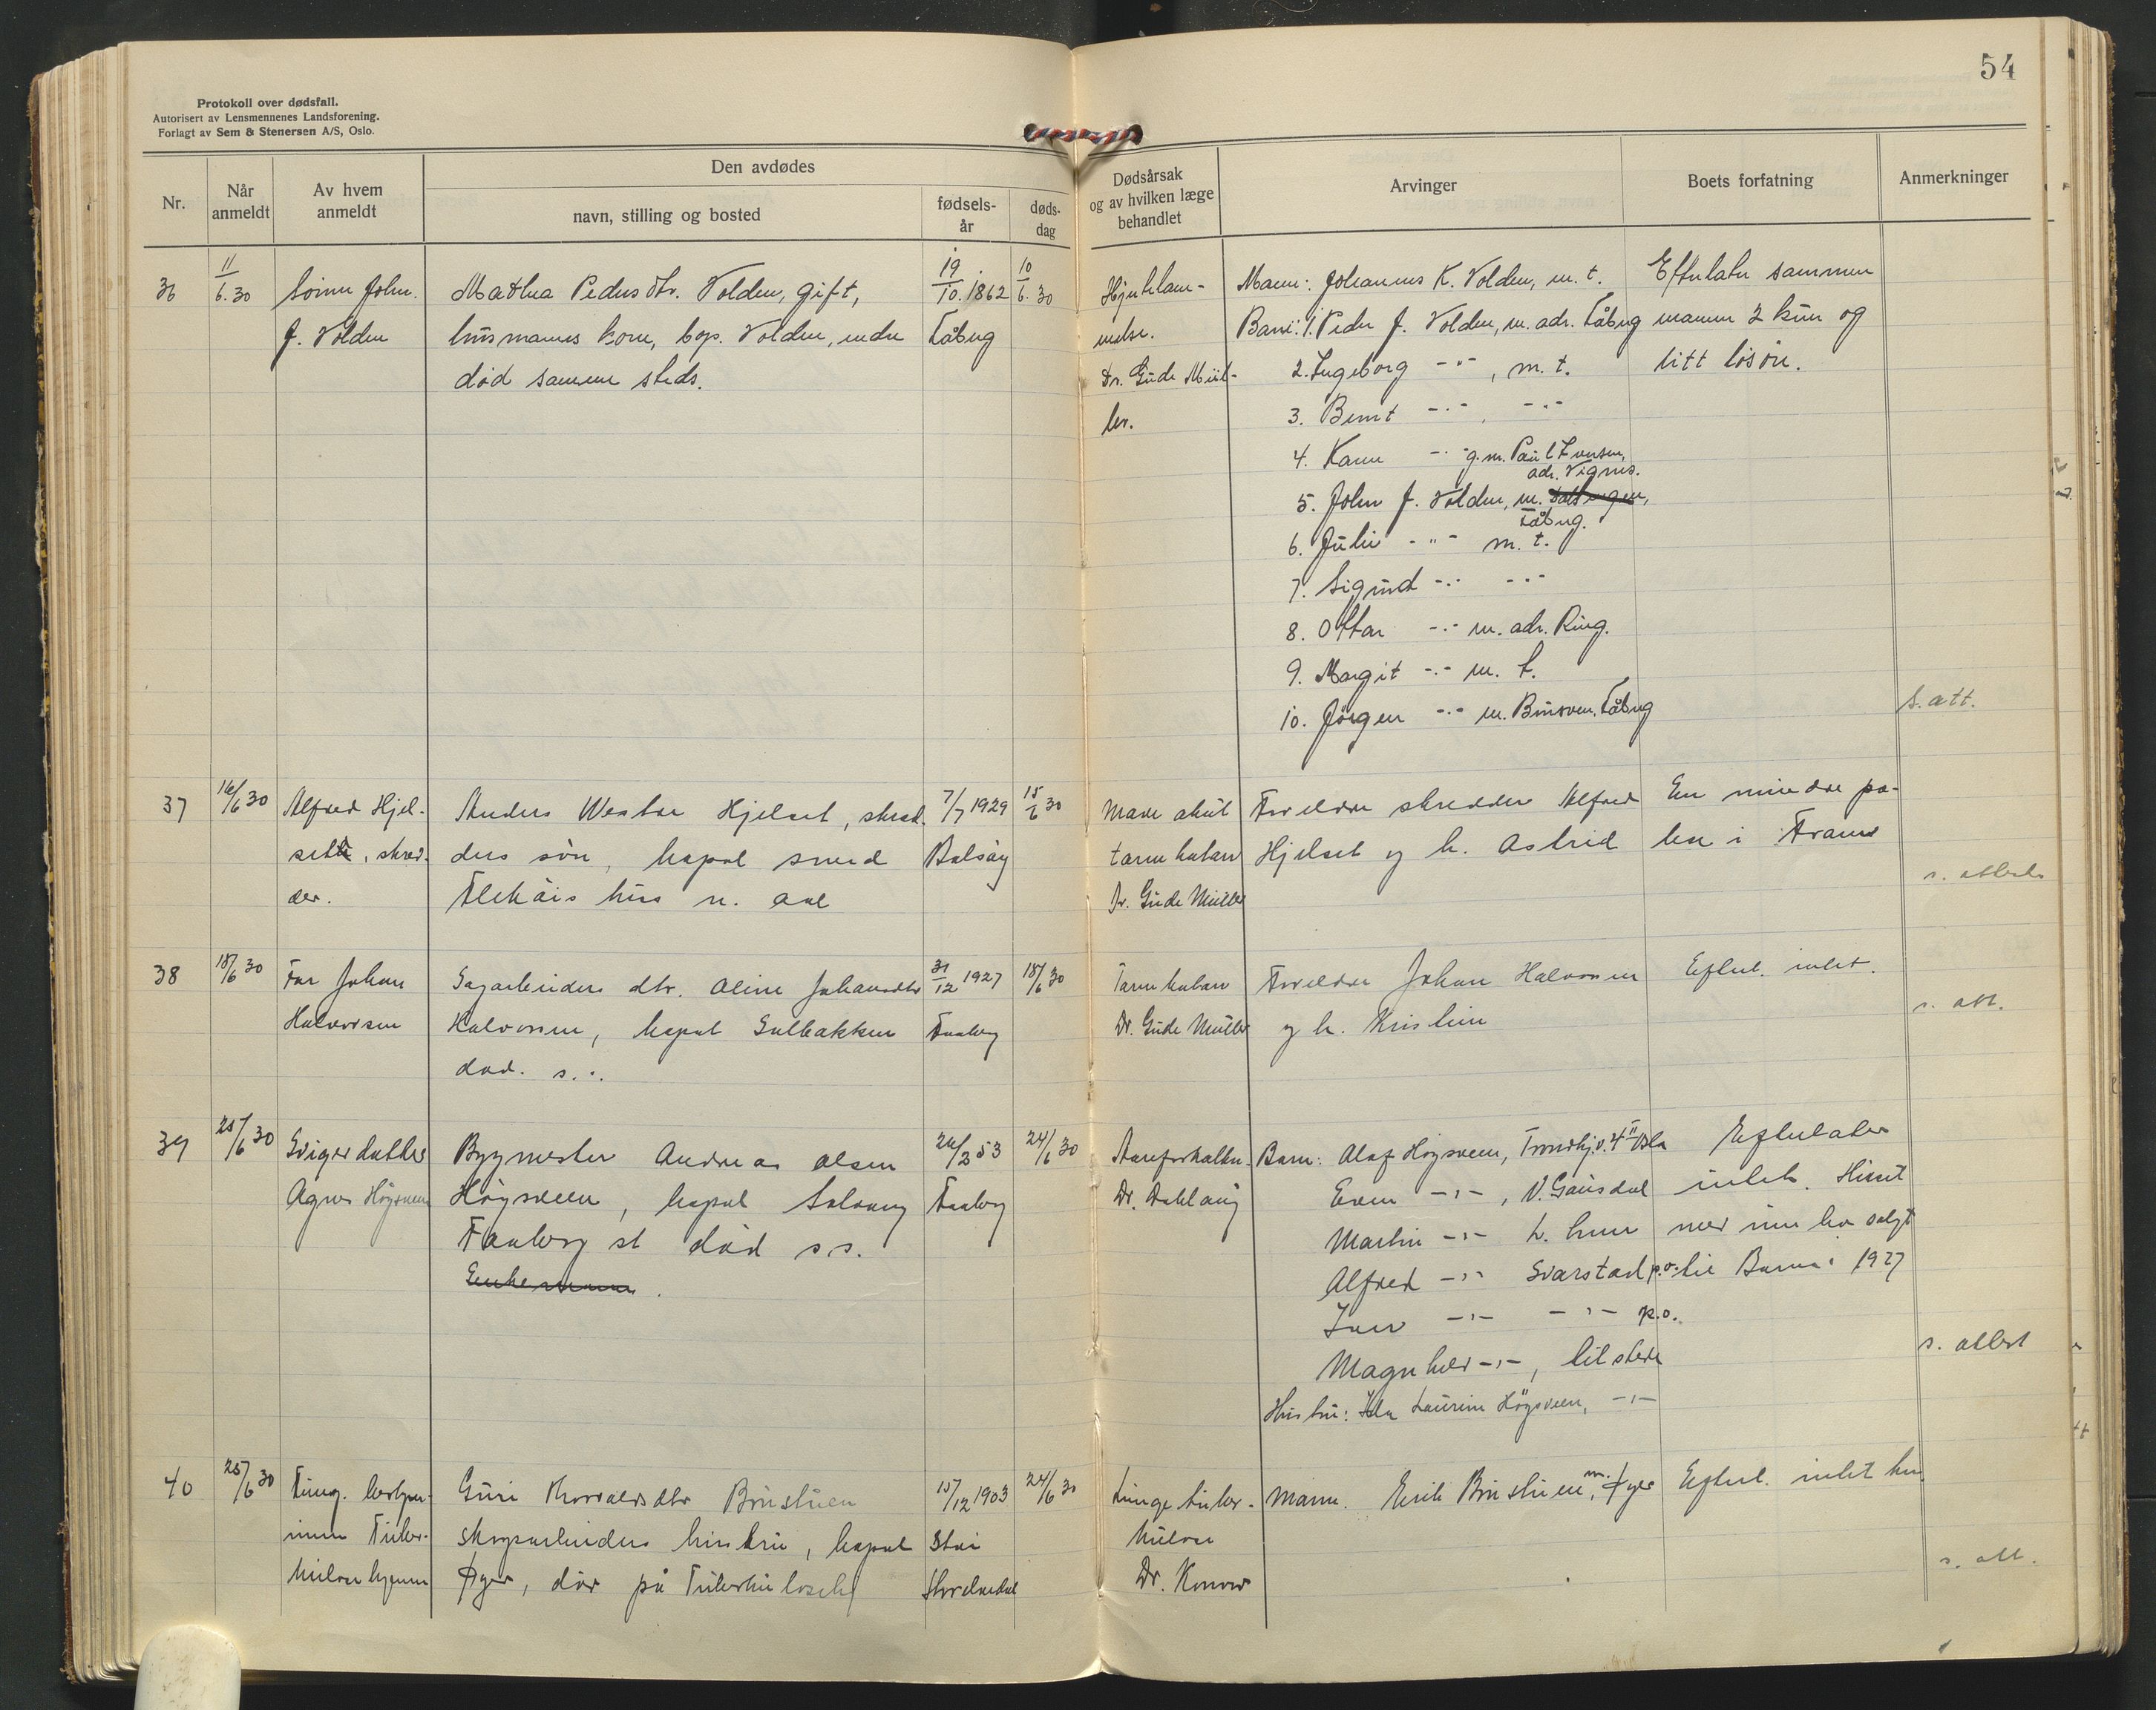 54
Protokoll over dødsfall.
Autorisert av Lensmennenes Landsforening.
Forlagt av Sem & Stenersen A/S, Oslo.
Nr.
Når anmeldt
Av hvem anmeldt
Den avdødes
navn, stilling og bosted
fødsels-år
døds-dag
Dødsårsak og av hvilken læge behandlet
Arvinger
Boets forfatning
Anmerkninger
36
11/6.30
Sønn John.
J. Volden
Mathea Pedersdtr. Volden, gift,
husmanns kone, bop. Volden, indre
død samme steds.
19/10.1862
Fåbrg
10/6.30
Hjertelam-
melse.
Dr. Gude Mül-
ler.
Mann: Johannes K. Volden, m. t.
Barn: 1. Peder J. Volden, m. adr. Fåbrg
2. Ingeborg -"-, m. t.
3. Bernt -"-, -"-
4. Karen -"- g. m. Paul Iversen,
adr. Vignes.
5. John J. Volden, m.
Fåbrg.
6. Julie -"- m. t.
7. Sigurd -"- -"-
8. Ottar -"- m. adr. Ring.
9. Margit -"- m. t.
10. Jörgen -"- m. Fåbrg
Efterlater sammen
mannen 2 kuer og
litt lösöre.
s. att.
37
16/6 30
Alfred Hjel-
seth, skred-
der.
Anders Westar Hjelset, skred-
ders søn, bopæl smed
hus n. aal
7/7 1929
15/6 30
Mave akut
tarm katarr
Dr. Gude Müller
Foreldre skredder Alfred
Hjelset og h. Astrid
En mindre par-
i
s. attest
38
18/6 30
Far Johan
Halvorsen
Sagarbeiders dtr. Aline Johansdtr
Halvorsen, bopæl Sulbakken
død. s.s.
31/12 1927
Faaberg
18/6 30
Tarmkatarr
Dr. Gude Müller
Foreldre Johan Halvorsen
og h. Kristine
Efterl. intet.
s. att.
39
25/6 30
Svigerdatter
Agnes Høgsveen
Byggmester Andreas Olsen
Høgsveen, bopæl
Faaberg st død s.s.
Enkemann.
26/2 53
Faaberg
24/6 30
Aareforkalkn.
Dr.
Barn: Olaf Høgsveen, Trondhj.v. 4 II Oslo
Even -"-, V. Gausdal
Martin -"- L. hmr
Alfred -"- Svarstad p.o.
Iver -"- -"- p.o.
Magnhild -"-, tilstede
Hustru: Ida Laurine Högsveen, -"-
Efterlater
intet. Huset
med innbo solgt
til Barna i 1927
s. attest
40
25/6 30
Tuber-
kulosehjemm
Guri Thorvaldsdtr Brustuen
skogsarbeiders hustru, bopæl
Øyer, død på Tuberkuloseh
15/12 1903
Stai
Storelvedal
24/6 30
Lungetuber-
kulose
Dr. Konow
Mann. Erik Brustuen, m. Øyer
Efterl. intet hun
s. att.